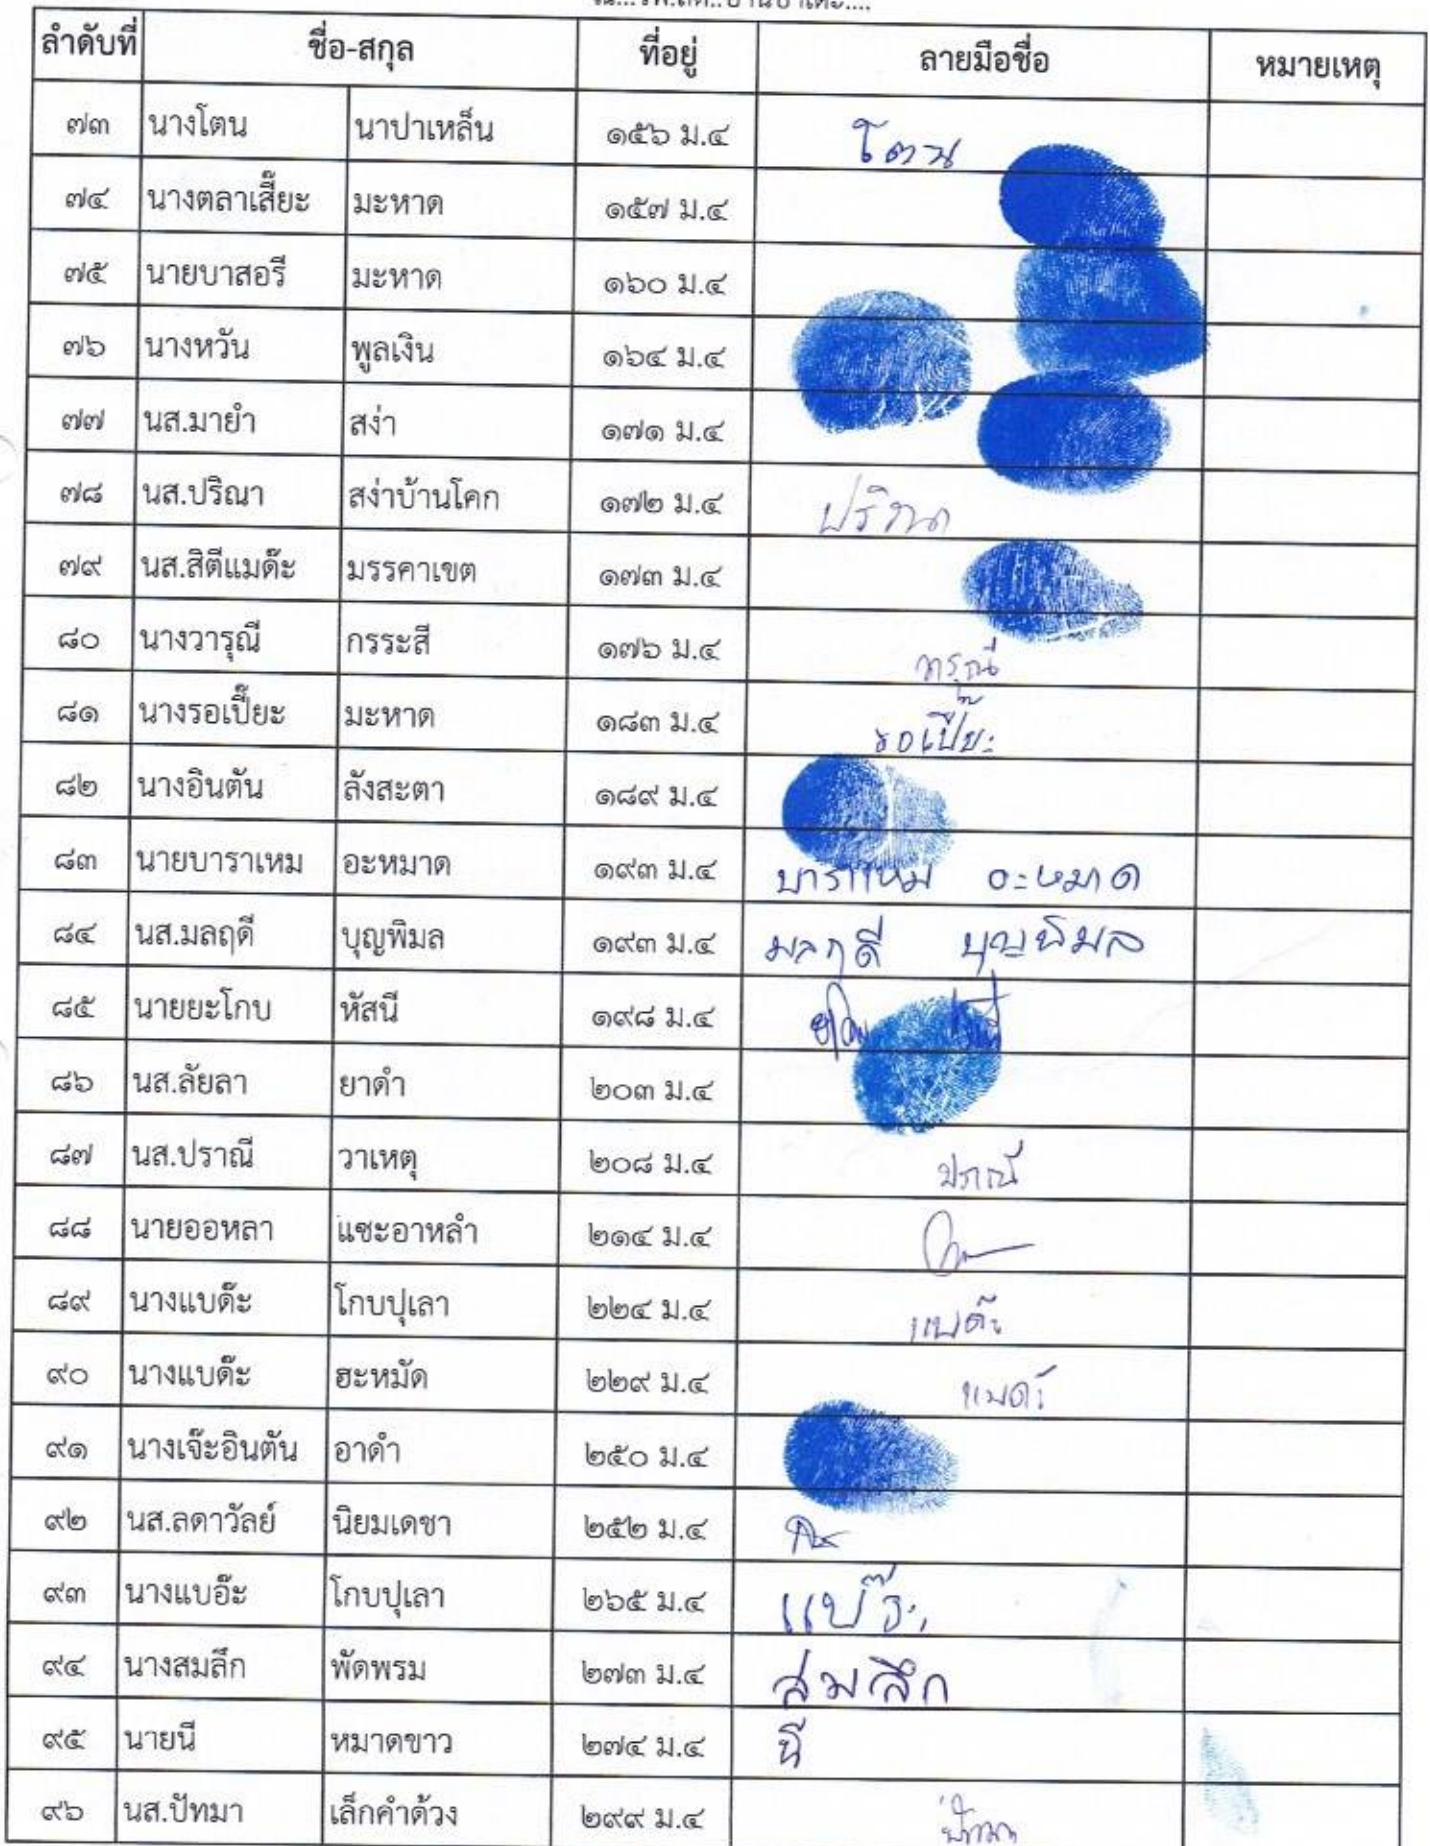 ลำดับที่ ชื่อ-สกุล ที่อยู่ ลายมือชื่อ หมายเหตุ
๗๓ นางโตน นาปาเหล็น ๑๕๖ ม.๔ โตน
๗๔ นางตลาเสี๊ยะ มะหาด ๑๕๗ ม.๔
๗๕ นายบาสอรี มะหาด ๑๖๐ ม.๔
๗๖ นางหวัน พูลเงิน ๑๖๔ ม.๔
๗๗ นส.มายำ สง่า ๑๗๑ ม.๔
๗๘ นส.ปริณา สง่าบ้านโคก ๑๗๒ ม.๔ ปริณา
๗๙ นส.สิตีแมด๊ะ มรรคาเขต ๑๗๓ ม.๔
๘๐ นางวารุณี กรระสี ๑๗๖ ม.๔ วารุณี
๘๑ นางรอเปี๊ยะ มะหาด ๑๘๓ ม.๔ รอเปี๊ยะ
๘๒ นางอินตัน ลังสะตา ๑๘๙ ม.๔
๘๓ นายบาราเหม อะหมาด ๑๙๓ ม.๔ บาราเหม อะหมาด
๘๔ นส.มลฤดี บุญพิมล ๑๙๓ ม.๔ มลฤดี บุญพิมล
๘๕ นายยะโกบ หัสนี ๑๙๘ ม.๔
๘๖ นส.ลัยลา ยาดำ ๒๐๓ ม.๔
๘๗ นส.ปราณี วาเหตุ ๒๐๘ ม.๔ ปราณี
๘๘ นายออหลา แซะอาหลำ ๒๑๔ ม.๔
๘๙ นางแบด๊ะ โกบปุเลา ๒๒๔ ม.๔ แบด๊ะ
๙๐ นางแบด๊ะ ฮะหมัด ๒๒๙ ม.๔
๙๑ นางเจ๊ะอินตัน อาดำ ๒๕๐ ม.๔
๙๒ นส.ลดาวัลย์ นิยมเดชา ๒๕๒ ม.๔
๙๓ นางแบอ๊ะ โกบปุเลา ๒๖๕ ม.๔ แบ๊อะ
๙๔ นางสมลึก พัดพรม ๒๗๓ ม.๔ สมลึก
๙๕ นายนี หมาดขาว ๒๗๔ ม.๔ นี
๙๖ นส.ปัทมา เล็กคำด้วง ๒๙๙ ม.๔ ปัทมา